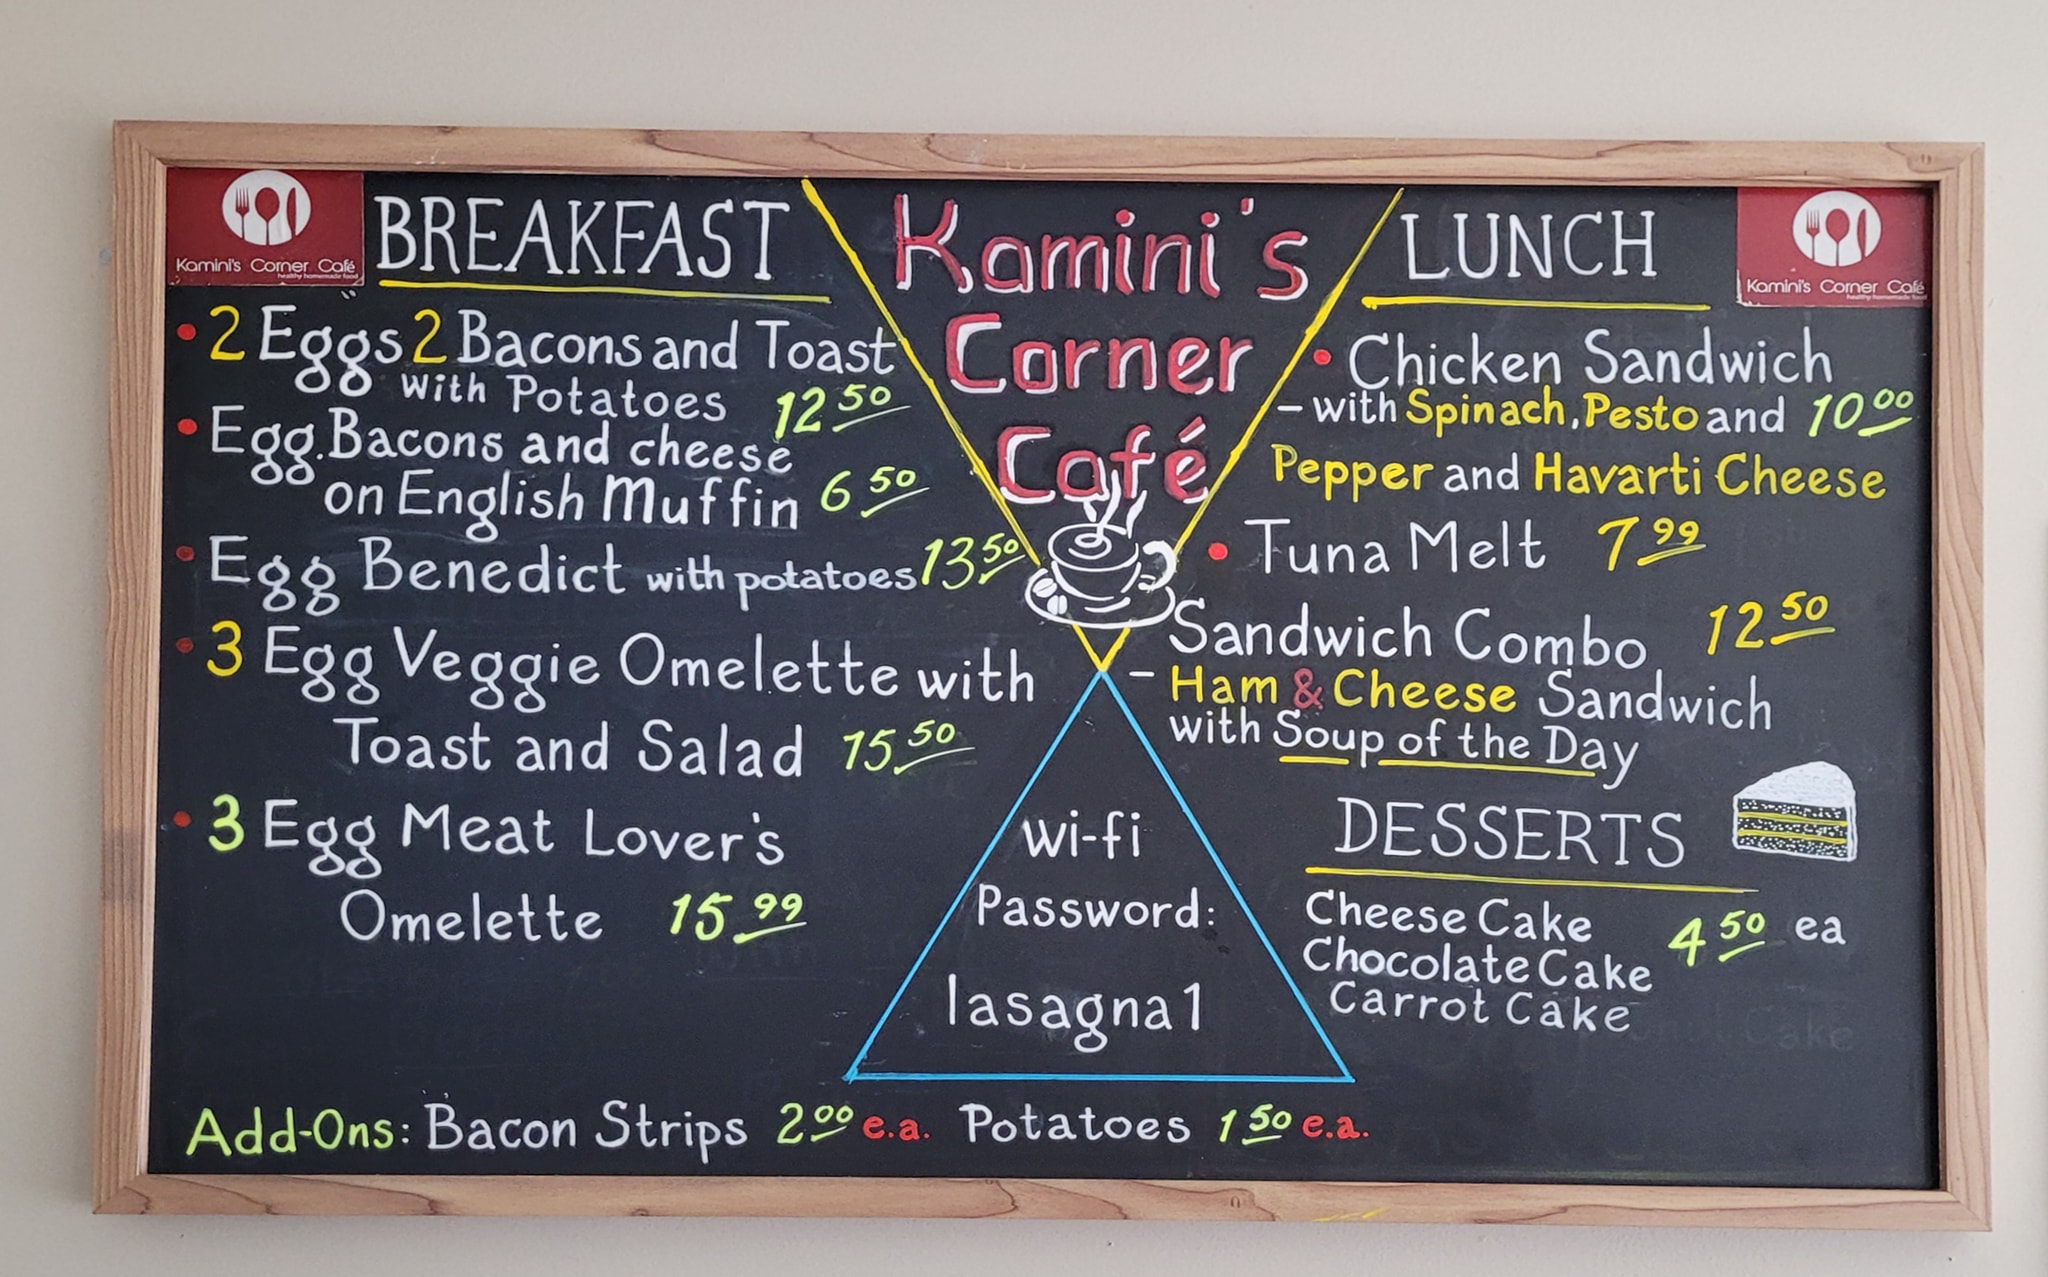 Kamini's Corner Café
healthy homemade food
BREAKFAST
• 2 Eggs 2 Bacons and Toast
with Potatoes 12.50
• Egg. Bacons and cheese
on English Muffin 6.50
• Egg Benedict with potatoes 13.50
• 3 Egg Veggie Omelette with
Toast and Salad 15.50
• 3 Egg Meat Lover's
Omelette 15.99
Kamini's
Corner
Café
wi-fi
Password:
lasagna1
LUNCH
Kamini's Corner Café
healthy homemade food
• Chicken Sandwich
- with Spinach, Pesto and 10.00
Pepper and Havarti Cheese
• Tuna Melt 7.99
Sandwich Combo 12.50
- Ham & Cheese Sandwich
with Soup of the Day
DESSERTS
Cheese Cake
Chocolate Cake 4.50 ea
Carrot Cake
Add-Ons: Bacon Strips 2.00 e.a. Potatoes 1.50 e.a.